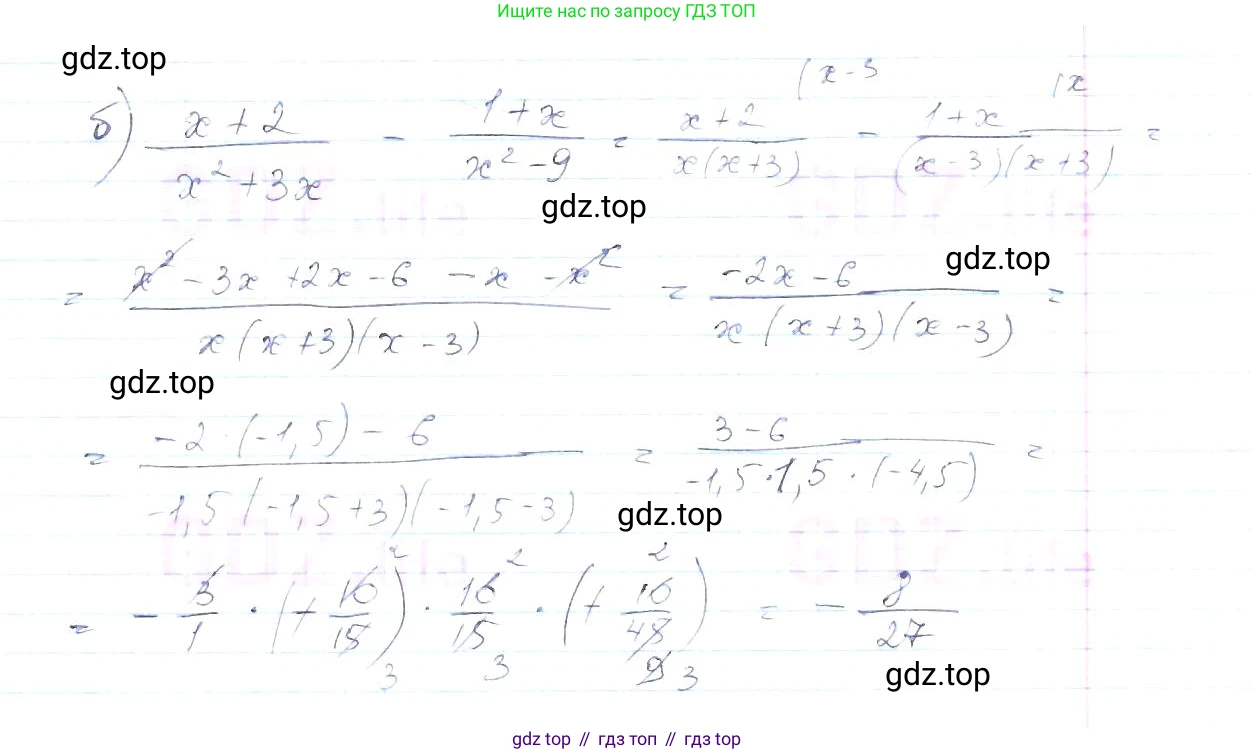 Ищите нас по запросу ГДЗ ТОП
gdz.top
б) (x + 2)/(x² + 3x) - (1 + x)/(x² - 9) = (x + 2)/(x(x + 3)) (x - 3 - (1 + x)/((x - 3)(x + 3)) (x =
gdz.top
= (x² - 3x + 2x - 6 - x - x²)/(x(x + 3)(x - 3)) = (-2x - 6)/(x(x + 3)(x - 3)) =
gdz.top
gdz.top
= (-2 · (-1,5) - 6)/(-1,5(-1,5 + 3)(-1,5 - 3)) = (3 - 6)/(-1,5 · 1,5 · (-4,5)) =
gdz.top
= - 3/1 · (+ 10/15) · 10/15 · (+ 10/45) = - 8/27
2 2 2
3 3 9 3
gdz.top
gdz top // гдз топ // гдз top